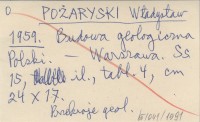 O POŻARYSKI Władysław
1959. Budowa geologiczna
Polski. — Warszawa. Ss
15, il., tabl. 4, cm
24 X 17.
geol.